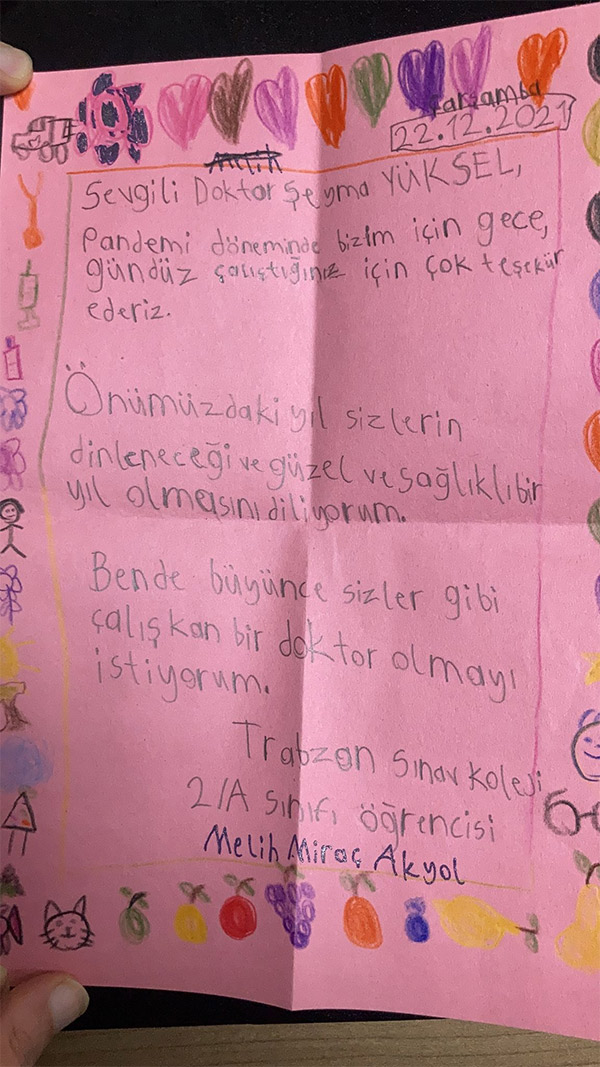 Çarşamba
22.12.2021
Melih
Sevgili Doktor Şeyma YÜKSEL,
Pandemi döneminde bizim için gece,
gündüz çalıştığınız için çok teşekür
ederiz.
Önümüzdaki yıl sizlerin
dinleneceği ve güzel ve sağlıklı bir
yıl olmasını diliyorum.
Bende büyünce sizler gibi
çalışkan bir doktor olmayı
istiyorum.
Trabzon Sınav Koleji
2/A sınıfı öğrencisi
Melih Miraç Akyol